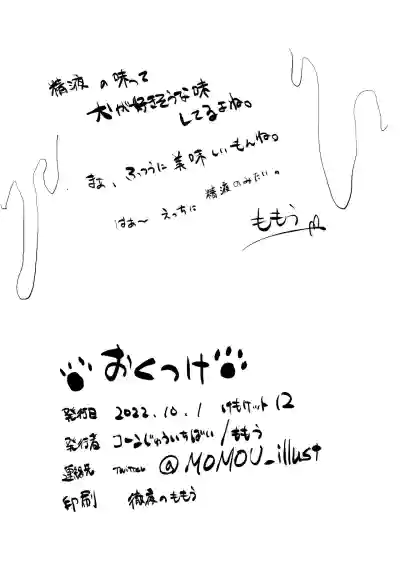 精液の味って
犬が好きそうな味
してるよね。
まぁ、ふつうに美味しいもんね。
はぁ〜えっちに精液のみたい。
ももう
おくづけ
発行日 2022.10.1 けもケット12
発行者 コーンじゅういちばい/ももう
連絡先 Twitter @MOMOU_illust
印刷 徹夜のももう